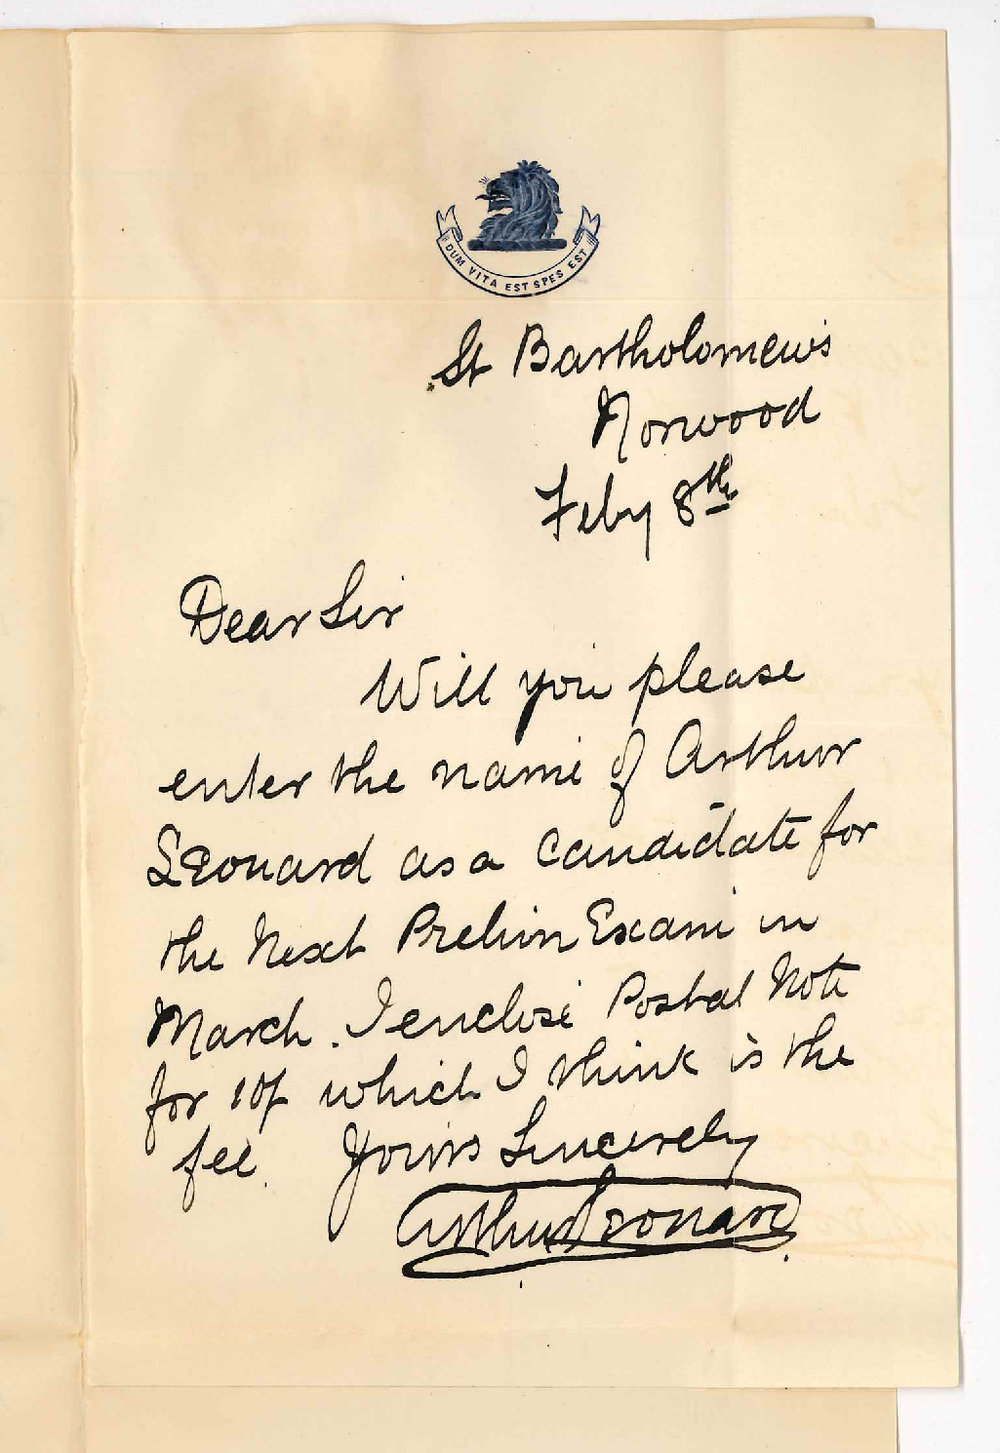 DUM VITA EST SPES EST
St Bartholomew's
Norwood
Feby 8th
Dear Sir
Will you please
enter the name of Arthur
Leonard as a candidate for
the Next Prelim Exam in
March. I enclose Postal Note
for 10/- which I think is the
fee. Yours Sincerely
Arthur Leonard